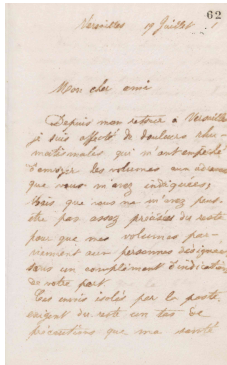 62
Versailles 19 Juillet
Mon cher ami
Depuis mon retour à Versailles
je suis affecté de douleurs rhu-
matismales qui m'ont empêché
d'envoyer les volumes aux adresses
que vous m'avez indiquées,
Vous ne m'avez peut-
assez précisées du reste
pour que mes volumes par-
viennent aux personnes désignées
sans un complément d'indication
de votre part.
Ces envois isolés par la poste
exigent du reste un tas de
précautions que ma santé